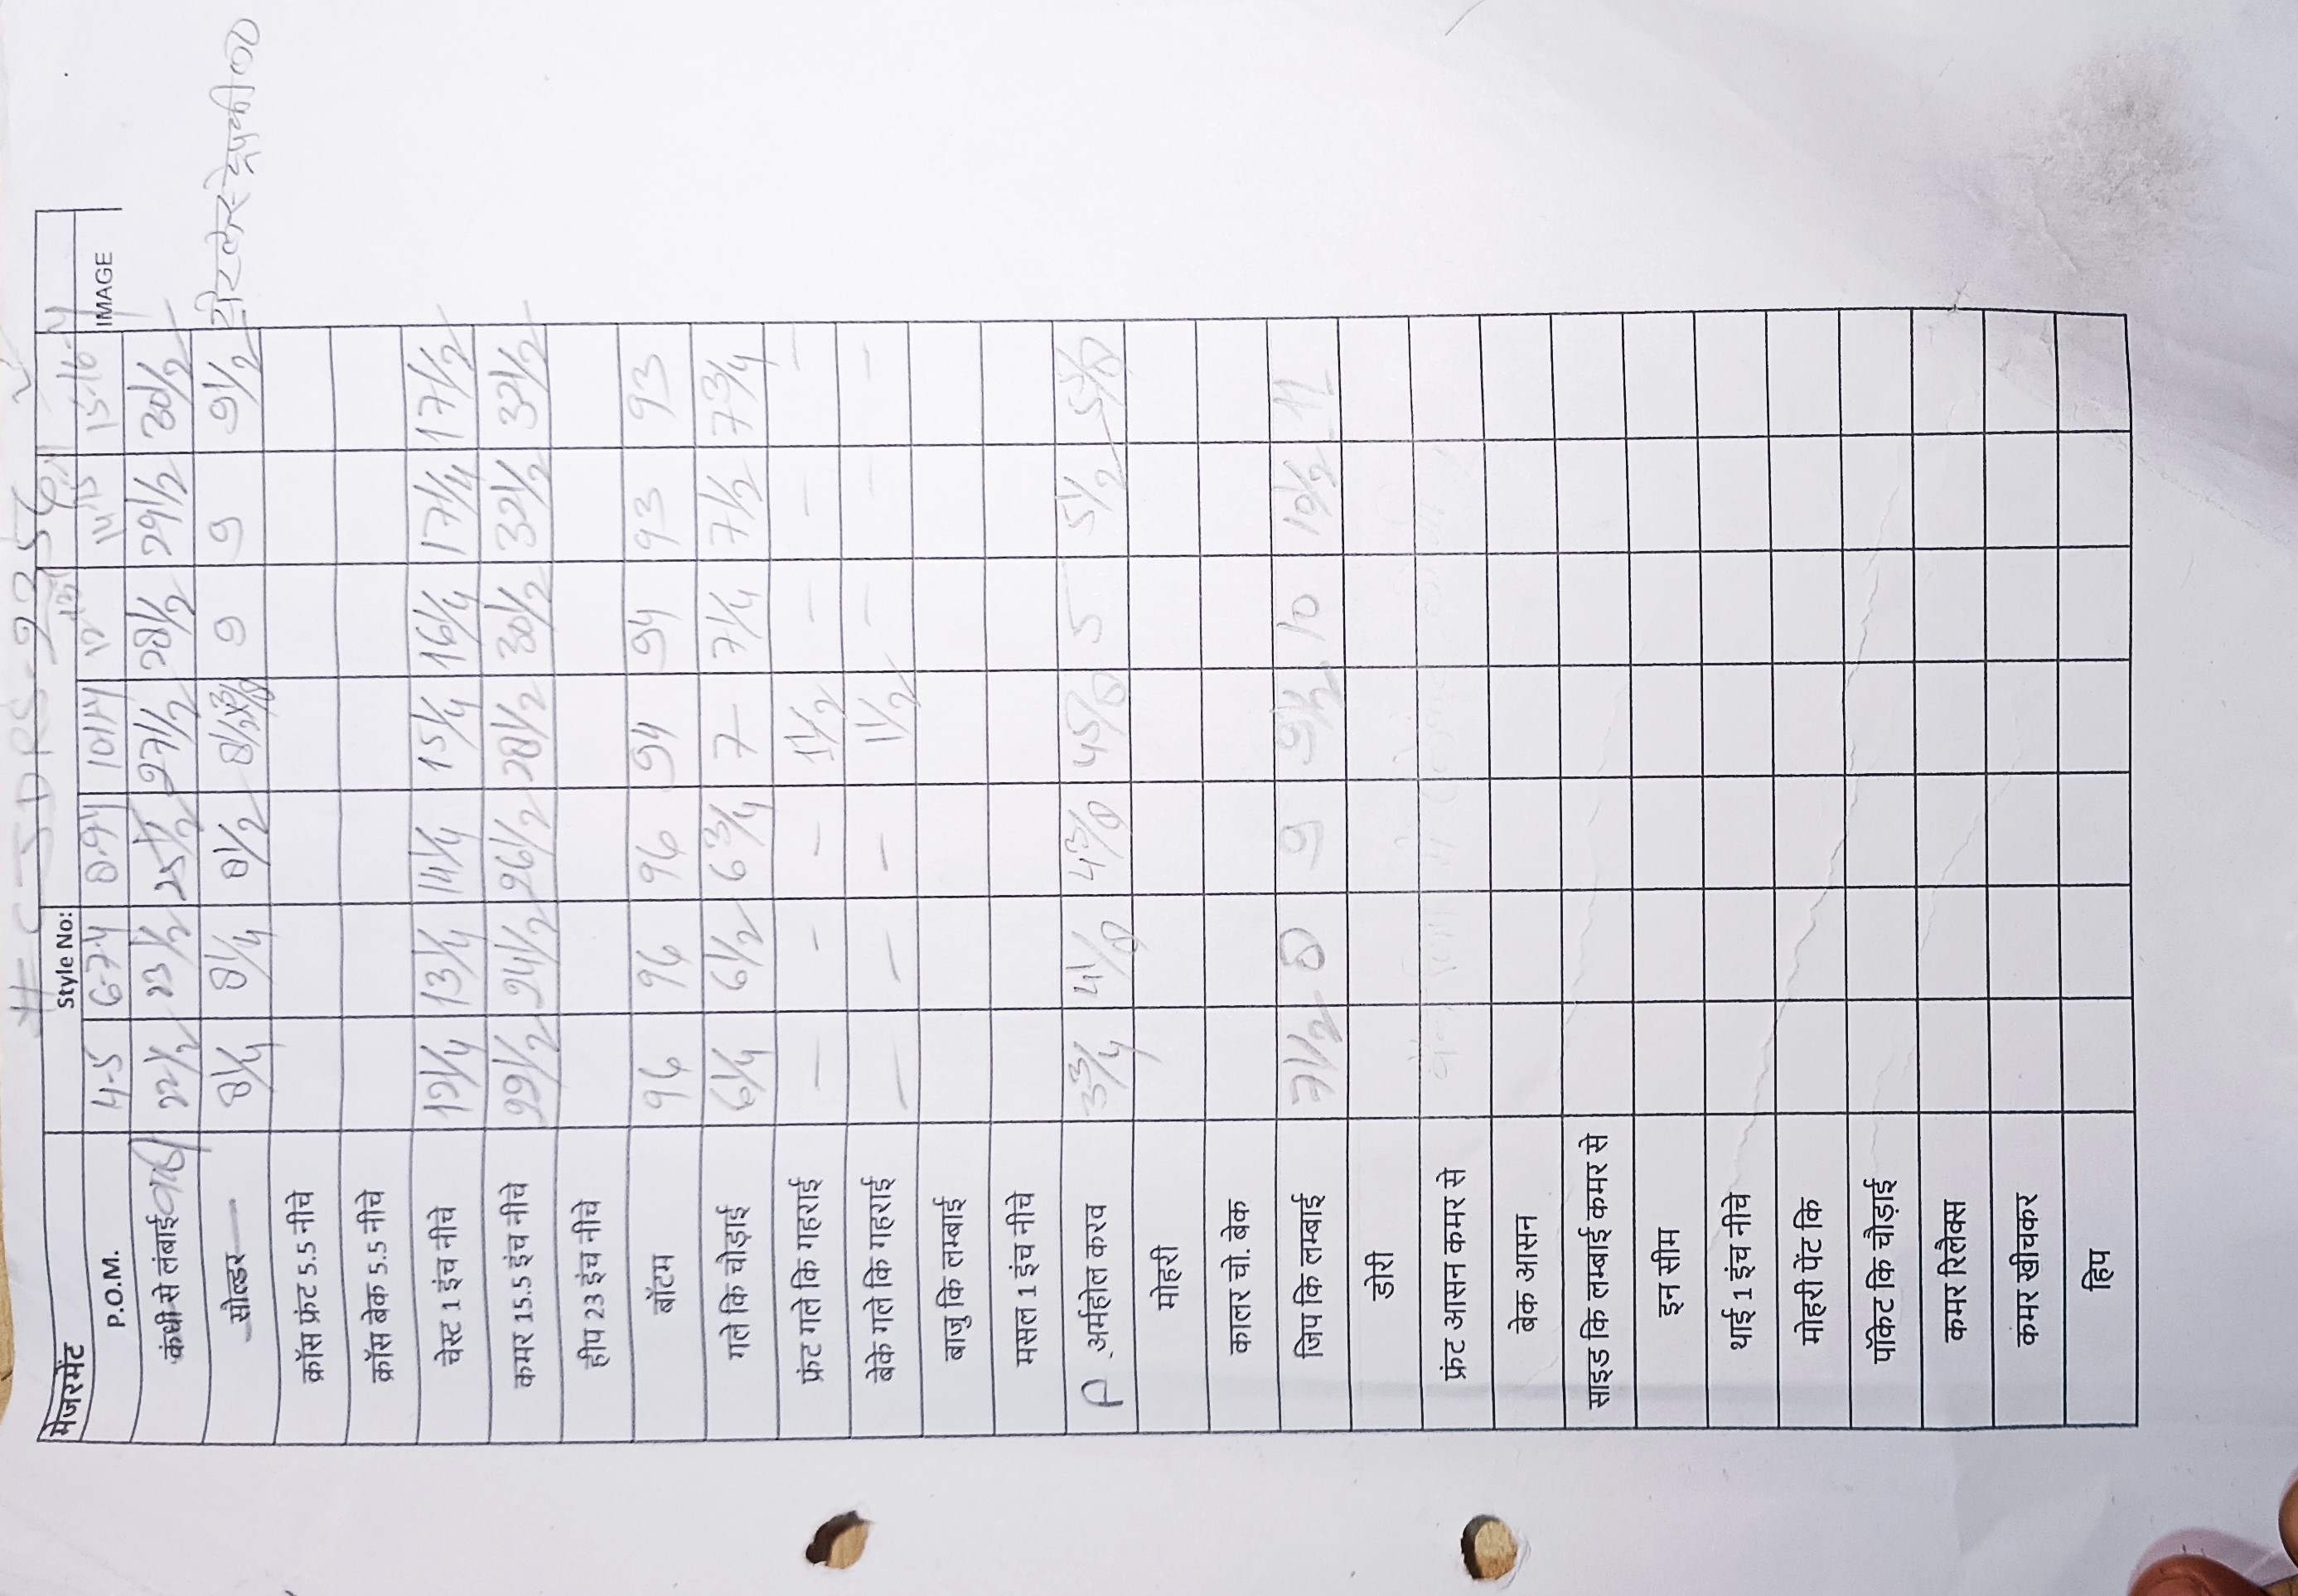 # CSDRS-9356
मेजरमेंट Style No:
P.O.M. 4-5 6-7Y 8-9Y 10/11Y 15-16-Y IMAGE
कंधी से लंबाई 22 1/2 23 1/2 25 1/2 27 1/2 28 1/2 29 1/2 30 1/2
सोल्डर 8 1/4 8 1/4 8 1/2 9 9 9 1/2
क्रॉस फ्रंट 5.5 नीचे
क्रॉस बेक 5.5 नीचे
चेस्ट 1 इंच नीचे 12 1/4 13 1/4 14 1/4 15 1/4 16 1/4 17 1/4 17 1/2
कमर 15.5 इंच नीचे 22 1/2 24 1/2 26 1/2 28 1/2 30 1/2 32 1/2 32 1/2
हीप 23 इंच नीचे
बॉटम 96 96 96 94 94 93 93
गले कि चौड़ाई 6 1/4 6 1/2 6 3/4 7 - 7 1/4 7 1/2 7 3/4
फ्रंट गले कि गहराई - - - 1 1/2 - - -
बेके गले कि गहराई - - - 1 1/2 - - -
बाजु कि लम्बाई
मसल 1 इंच नीचे
अर्महोल करव 3 3/4 4 1/8 4 3/8 4 5/8 5 5 1/2 5 5/8
मोहरी
कालर चो. बेक
जिप कि लम्बाई 7 1/2 8 9 9 1/2 10 10 1/2 11
डोरी
फ्रंट आसन कमर से
बेक आसन
साइड कि लम्बाई कमर से
इन सीम
थाई 1 इंच नीचे
मोहरी पेंट कि
पॉकेट कि चौड़ाई
कमर रिलैक्स
कमर खीचकर
हिप